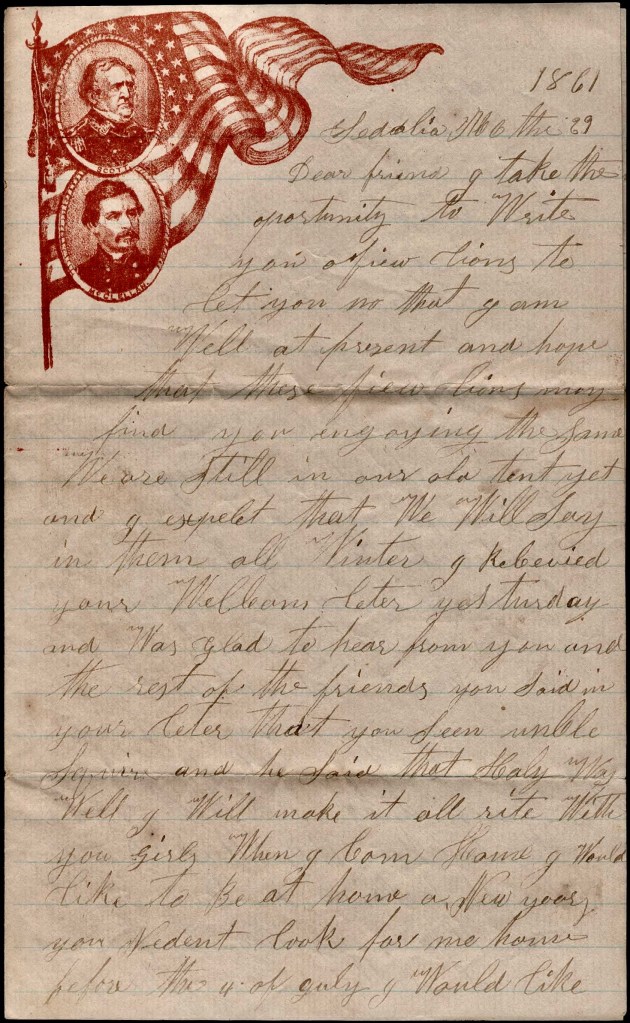 1861
SCOTT
McCLELLAN
Sedalia Mo the 29
Dear friend I take the
oportunity to Write
you a fiew lions to
let you no that I am
Well at present and hope
that these fiew lions may
find you enjoying the same
We are Still in our old tent yet
and I expelct that We Will Say
in them all Winter I Recevied
your Wellcom leter yesturday
and Was Glad to hear from you and
the rest of the friends you Said in
your leter that you Seen unble
Squire and he Said that Haly Was
Well I Will make it all rite With
you Girls When I Com Home I Would
like to Be at home a New years
you Nedent look for me home
before the 4 of july I Would like